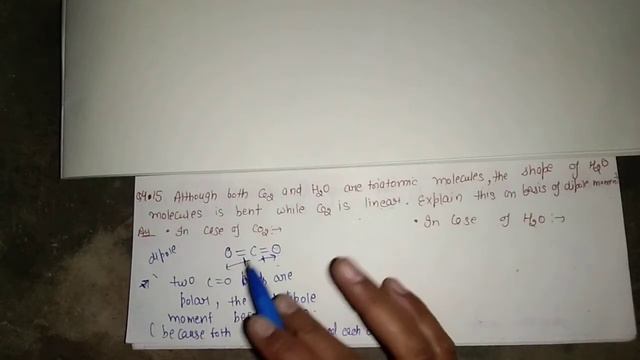 Q4.15 Although both CO2 and H2O are triatomic molecules, the shape of H2O
molecules is bent while CO2 is linear. Explain this on basis of dipole moment?
Ans • In case of CO2 :→
• In Case of H2O :→
dipole
O = C = O
two C=O are
polar, the
moment
( because both each